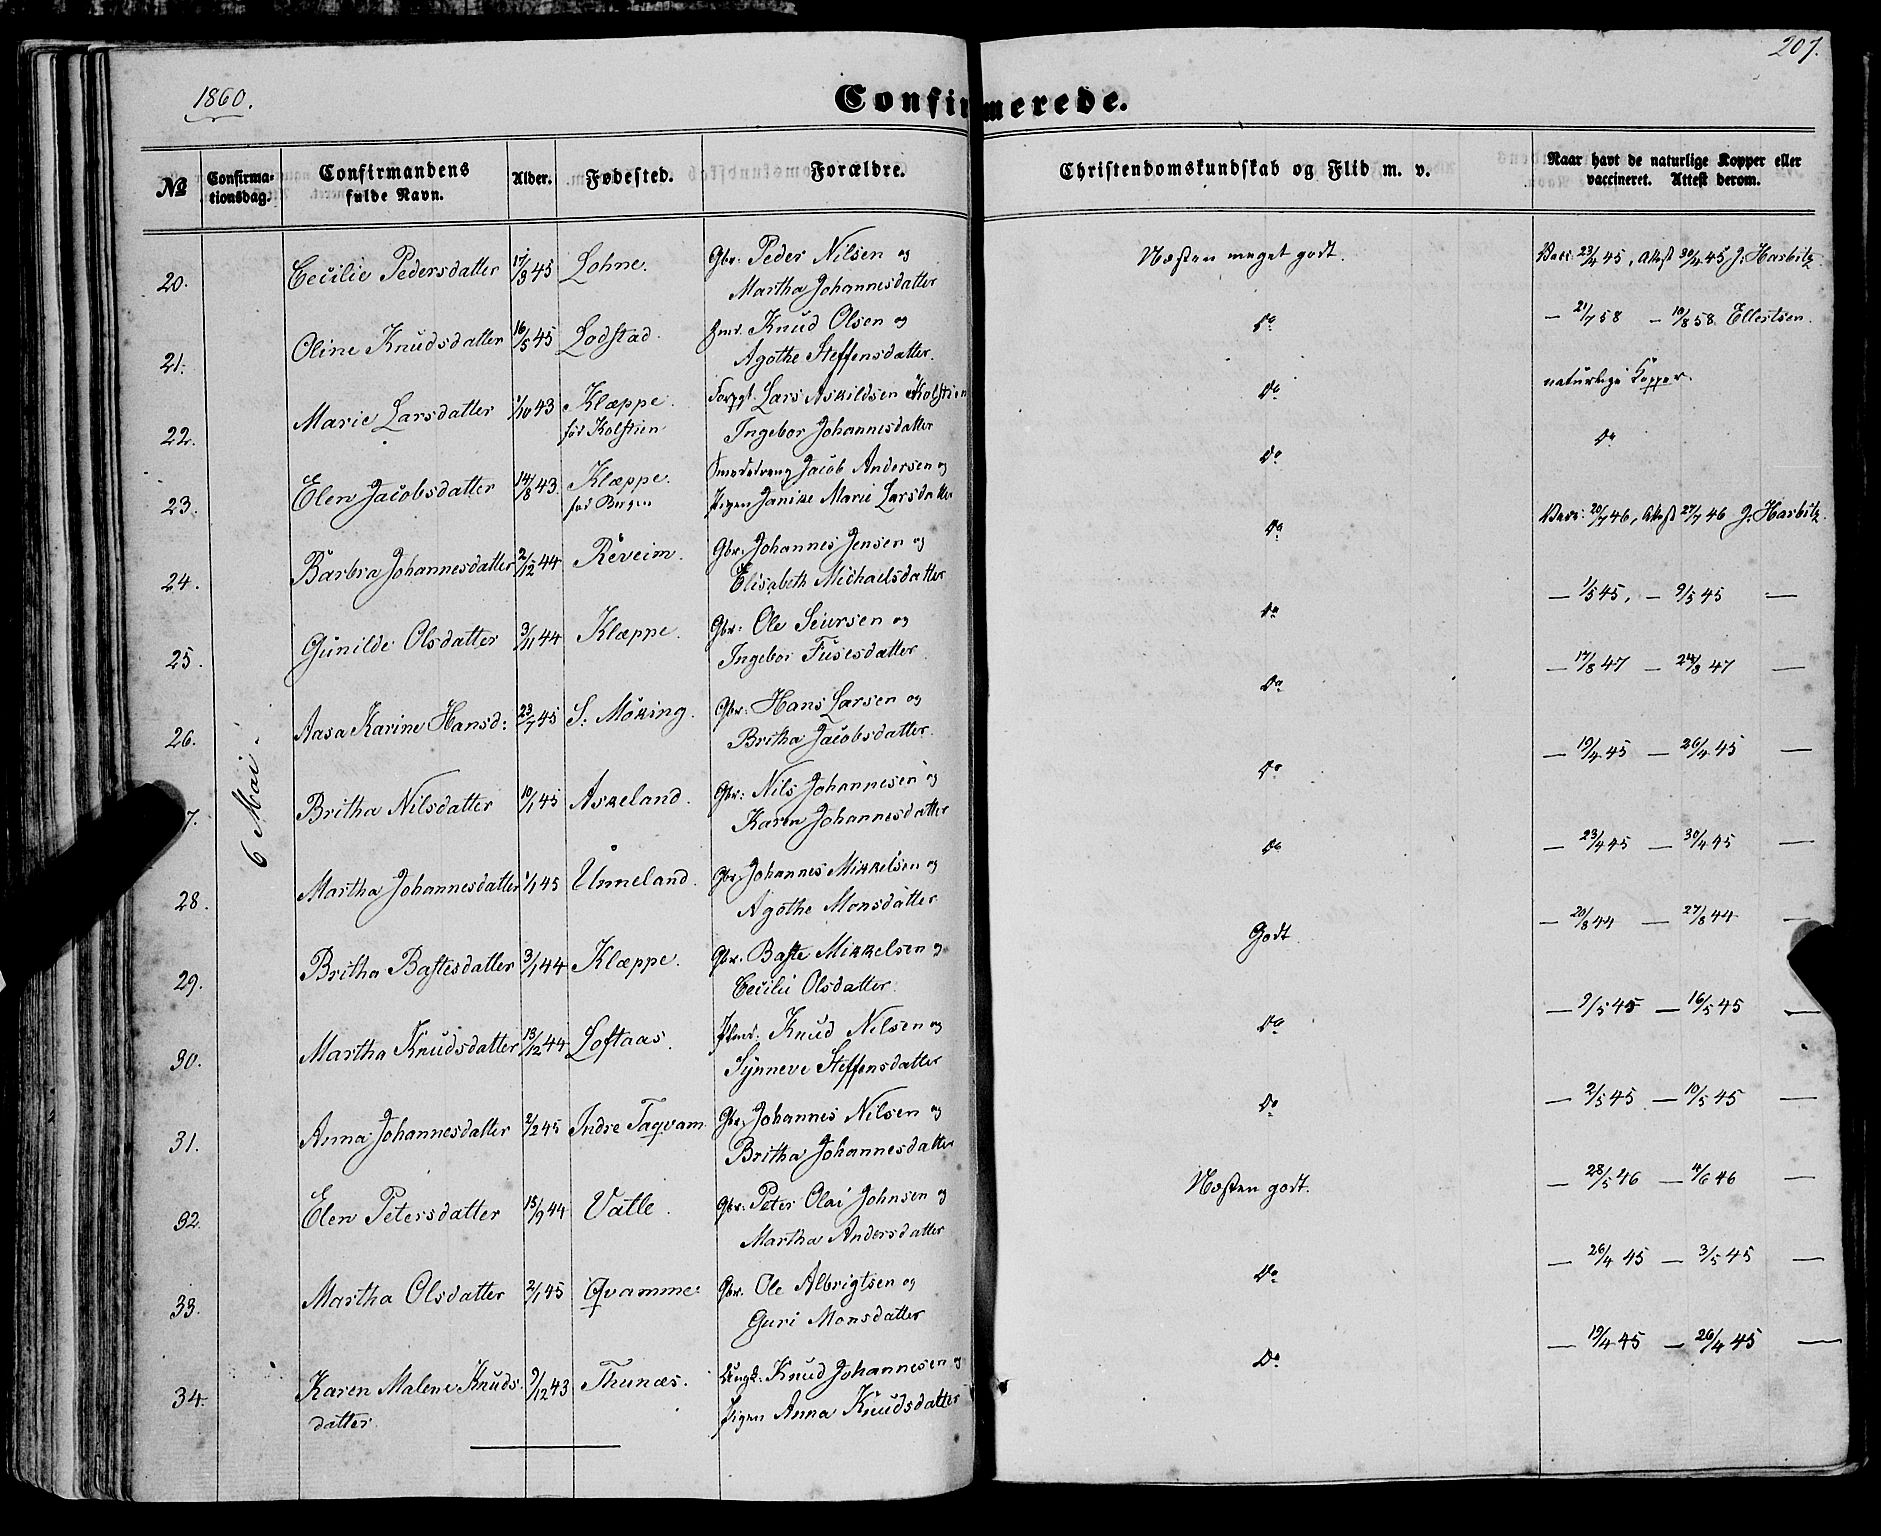 207.
1860.
Confirmerede.
№ Confirma-tionsdag. Confirmandens fulde Navn. Alder. Fødested. Forældre. Christendomskundskab og Flid m. v. Naar havt de naturlige Kopper eller vaccineret. Attest derom.
6 Mai.
20. Cecilie Pedersdatter 17/3 45 Lohne. Gbr: Peder Nilsen og Næsten meget godt. Vacc: 23/4 45, Attest 30/4 45 J. Harbitz
Martha Johannesdatter
21. Oline Knudsdatter 16/5 45 Lodstad. Knud Olsen og Do — 21/7 58 — 10/8 58 Ellertsen.
Agothe Steffensdatter.
22. Marie Larsdatter 1/10 43 Klæppe. Forpgt. Lars Askildsen Kolstien Do naturlige Kopper.
før Kolstien Ingebor Johannesdatter
23. Elen Jacobsdatter 14/8 43. Klæppe. Jacob Andersen og Do Do
Pigen Janike Marie Larsdatter
24. Barbra Johannesdatter 2/12 44 Reveim. Gbr: Johannes Jensen og Do Vacc: 20/7 46, Attest 27/7 46 J. Harbitz.
Elisabeth Michaelsdatter
25. Gunilde Olsdatter 3/11 44 Klæppe. Gbr: Ole Seursen og Do — 1/5 45, — 9/5 45 —
Ingebor Fusesdatter
26. Aasa Karine Hansd: 23/7 45 S: Møking. Gbr: Hans Larsen og Do — 17/8 47 — 24/8 47 —
Britha Jacobsdatter.
7. Britha Nilsdatter 10/1 45 Askeland. Gbr: Nils Johannesen og Do — 19/4 45 — 26/4 45 —
Karen Johannesdatter
28. Martha Johannesdatter 1/1 45 Unneland. Gbr: Johannes Mikkelsen og Do — 23/4 45 — 30/4 45 —
Agothe Monsdatter
29. Britha Bastesdatter 3/1 44 Klæppe. Gbr. Baste Mikkelsen og Godt. — 20/8 44 — 27/8 44 —
Cecilie Olsdatter.
30. Martha Knudsdatter 13/12 44 Loftaas. Knud Nilsen og Do — 9/5 45 — 16/5 45 —
Synneve Steffensdatter
31. Anna Johannesdatter 2/2 45 Indre Taqvam Gbr: Johannes Nilsen og Do — 2/5 45 — 10/5 45 —
Britha Johannesdatter
32. Elen Petersdatter 13/9 44 Vatle. Gbr: Peter Olai Johnsen og Næsten godt. — 28/5 46 — 4/6 46 —
Martha Andersdatter
33. Martha Olsdatter 2/1 45 Qvamme Gbr. Ole Albrigtsen og Do — 26/4 45 — 3/5 45 —
Guri Monsdatter
34. Karen Malene Knuds- 9/12 43 Thunæs. Ungk: Knud Johannesen og Do — 19/4 45 — 26/4 45 —
datter. Pigen Anna Knudsdatter